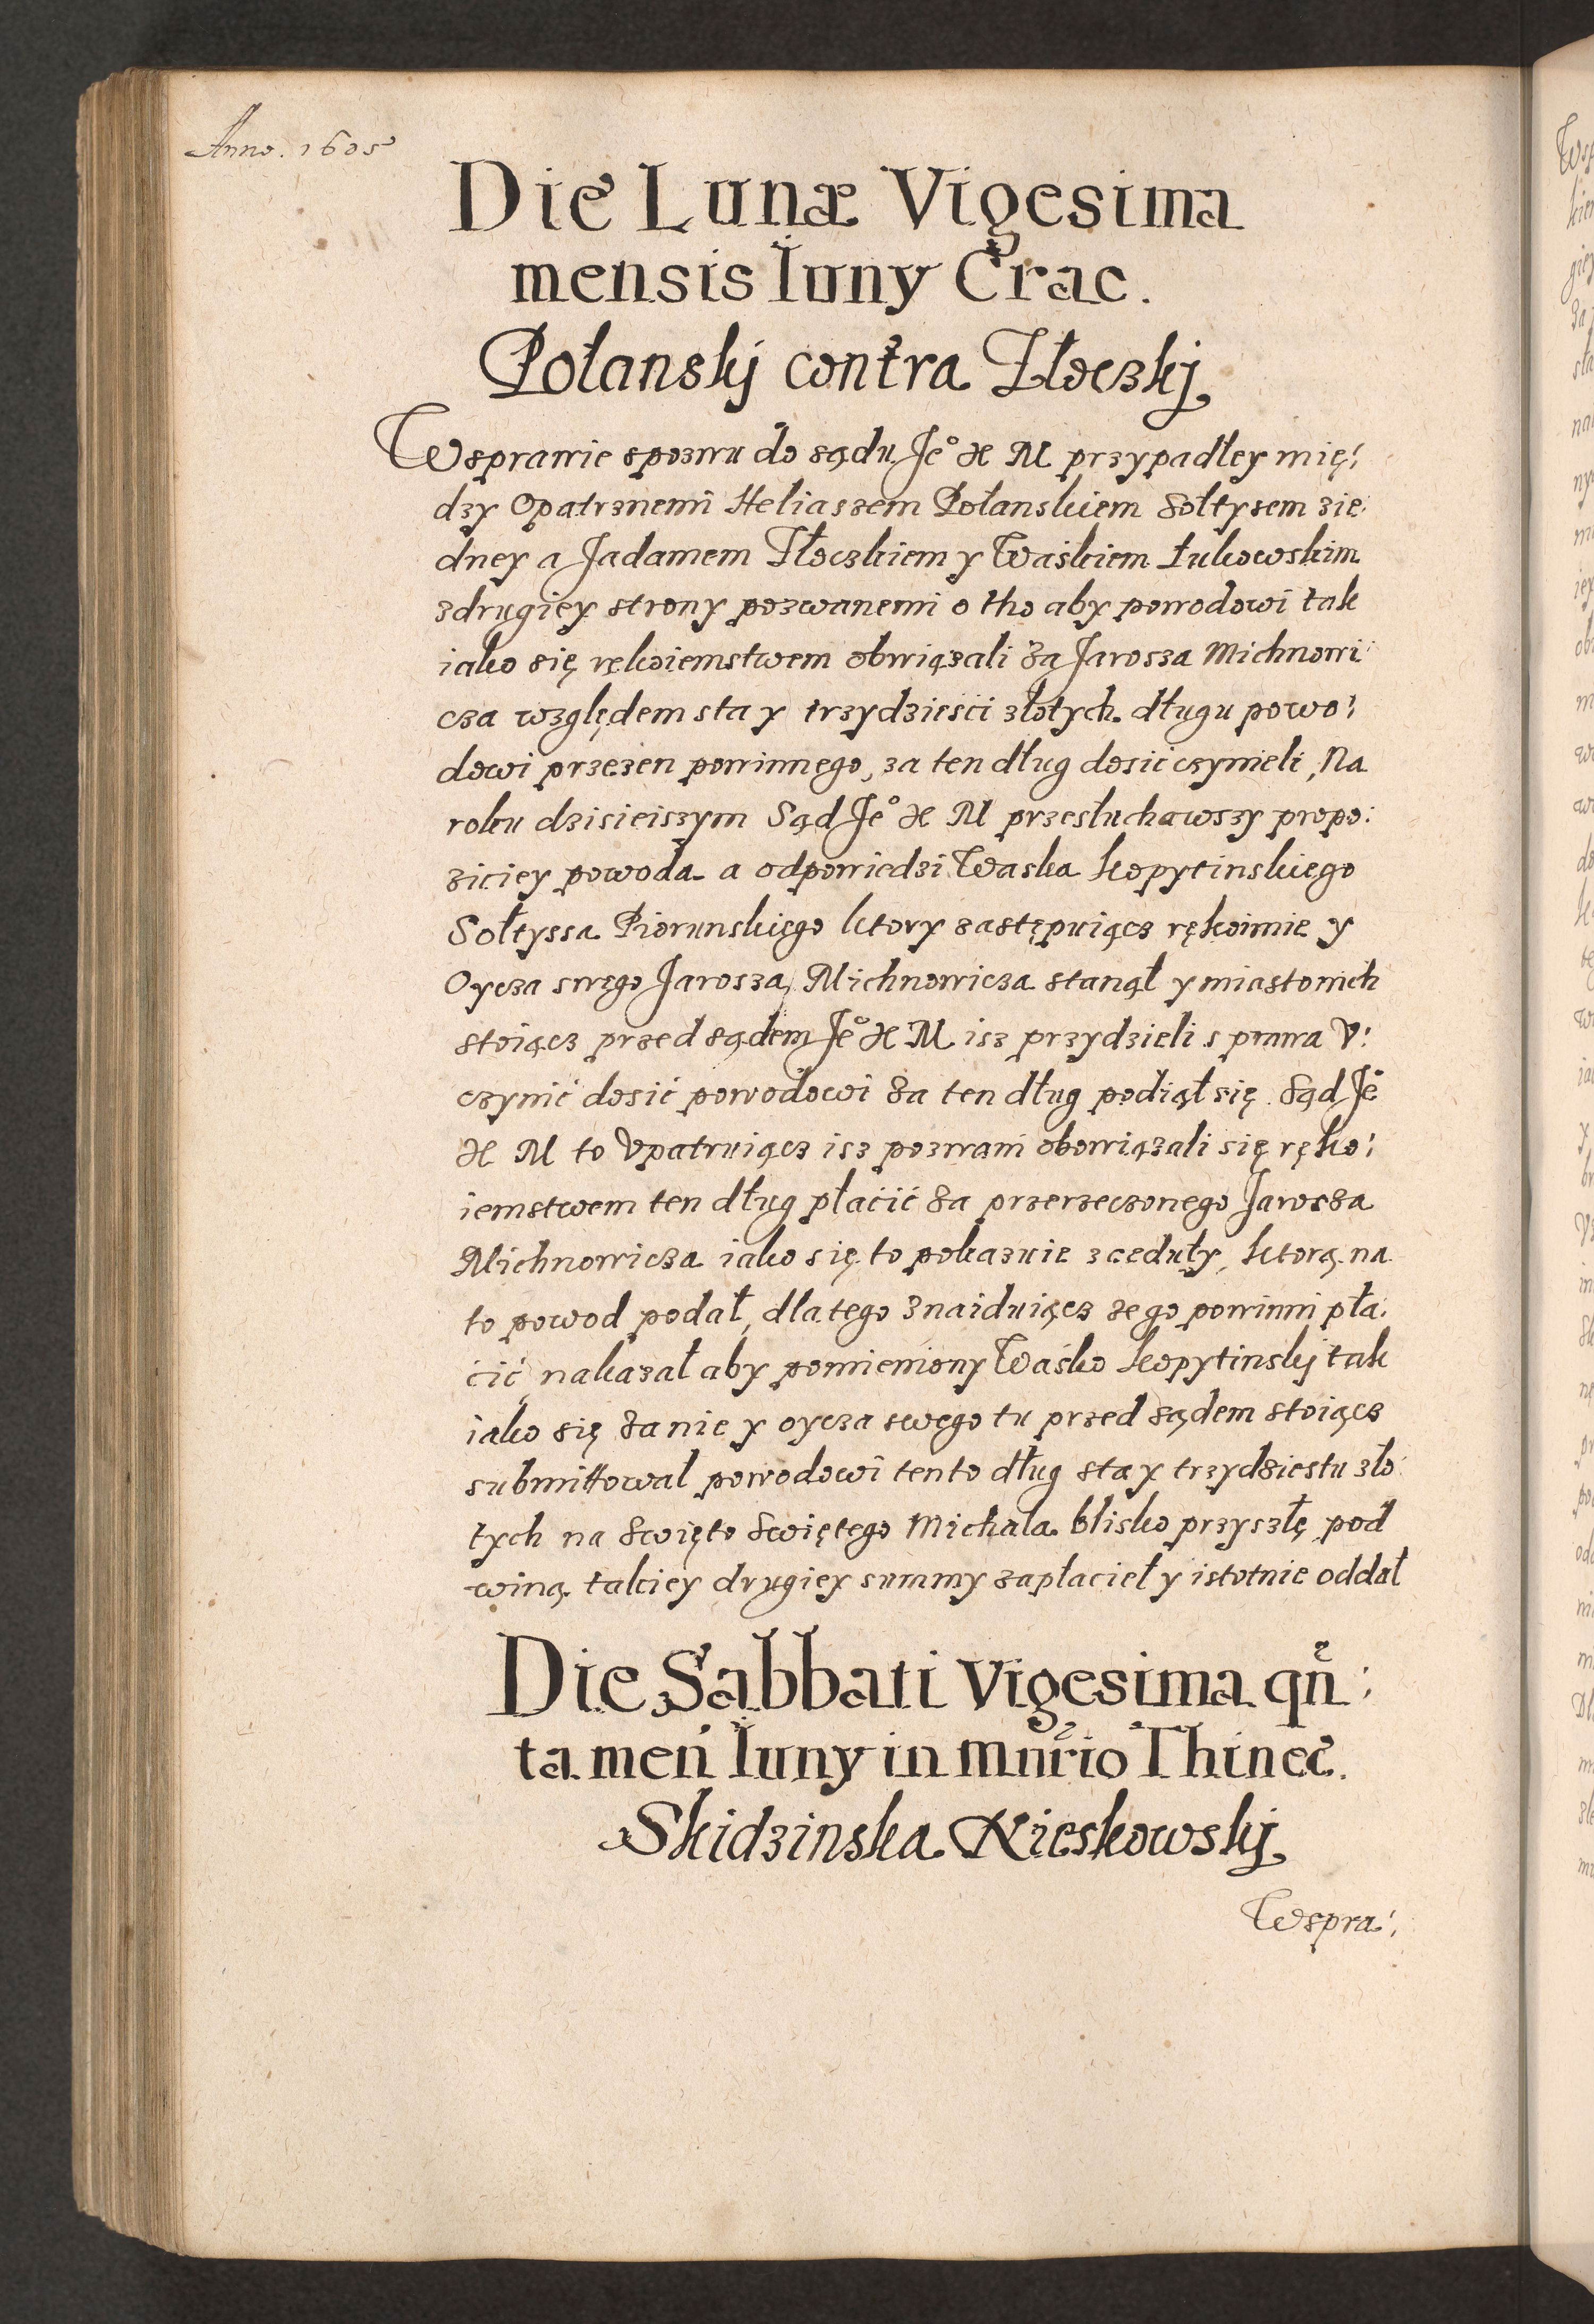 Anno. 1605
Die Lunæ Vigesima
mensis Iuny Crac.
Polanskj contra Tłoczkj
Wsprawie spozwu do sądu Je° K M przypadłey mię:
dzy Opatrznemi Heliaszem Polanskiem Sołtysem zie:
dney a Jadamem Tłoczkiem y Waśkiem Łukowskim
zdrugiey strony pozwanemi o tho aby powodowi tak
iako się rękoiemstwem obwiązali za Jarosza Michnowi:
cza względem sta y trzydzieści złotych długu powo:
dowi przezen powinnego, za ten dług dosić czynieli, Na
roku dzisieiszym Sąd Je° K M przesłuchawszy propo:
ziciey powoda a odpowiedzi Waska Kopytinskiego
Sołtyssa Piorunskiego ktory zastępuiącz rękoimie y
Oycza swego Jarosza Michnowicza stanął y miasto nich
stoiącz przed sądem Je° K M isz przydzieli s prawa V:
czynić dosić powodowi za ten dług podiął się. Sąd Je°
K M to Vpatruiącz isz pozwani obowiązali się ręko:
iemstwem ten dług płacić za przerzeczonego Jarosza
Michnowicza iako się to pokazuie z ceduły, ktorą na
to powod podał, dla tego znaiduiącz ze go powinni pła:
cić, nakazał aby pomieniony Waśko Kopytinskj tak
iako się za nie y oycza swego tu przed sądem stoiącz
submittował powodowi ten to dług sta y trzydziestu zło:
tych na Swięto Swiętego Michała blisko przyszłe pod
winą takiey drugiey summy zapłacieł y istotnie oddał
Die Sabbati Vigesima qñ:
ta. meń Iuny in mnrio Thinec.
Skidzinska Kieskowskj
Wspra: